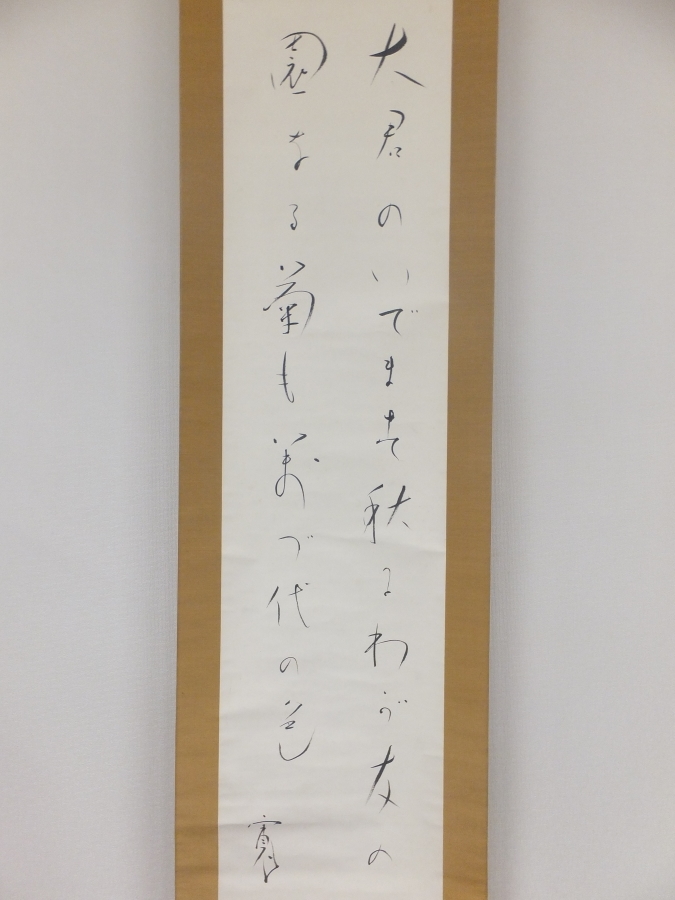 大君のいでます秋にわが友の
園なる菊も萬づ代の色
寛